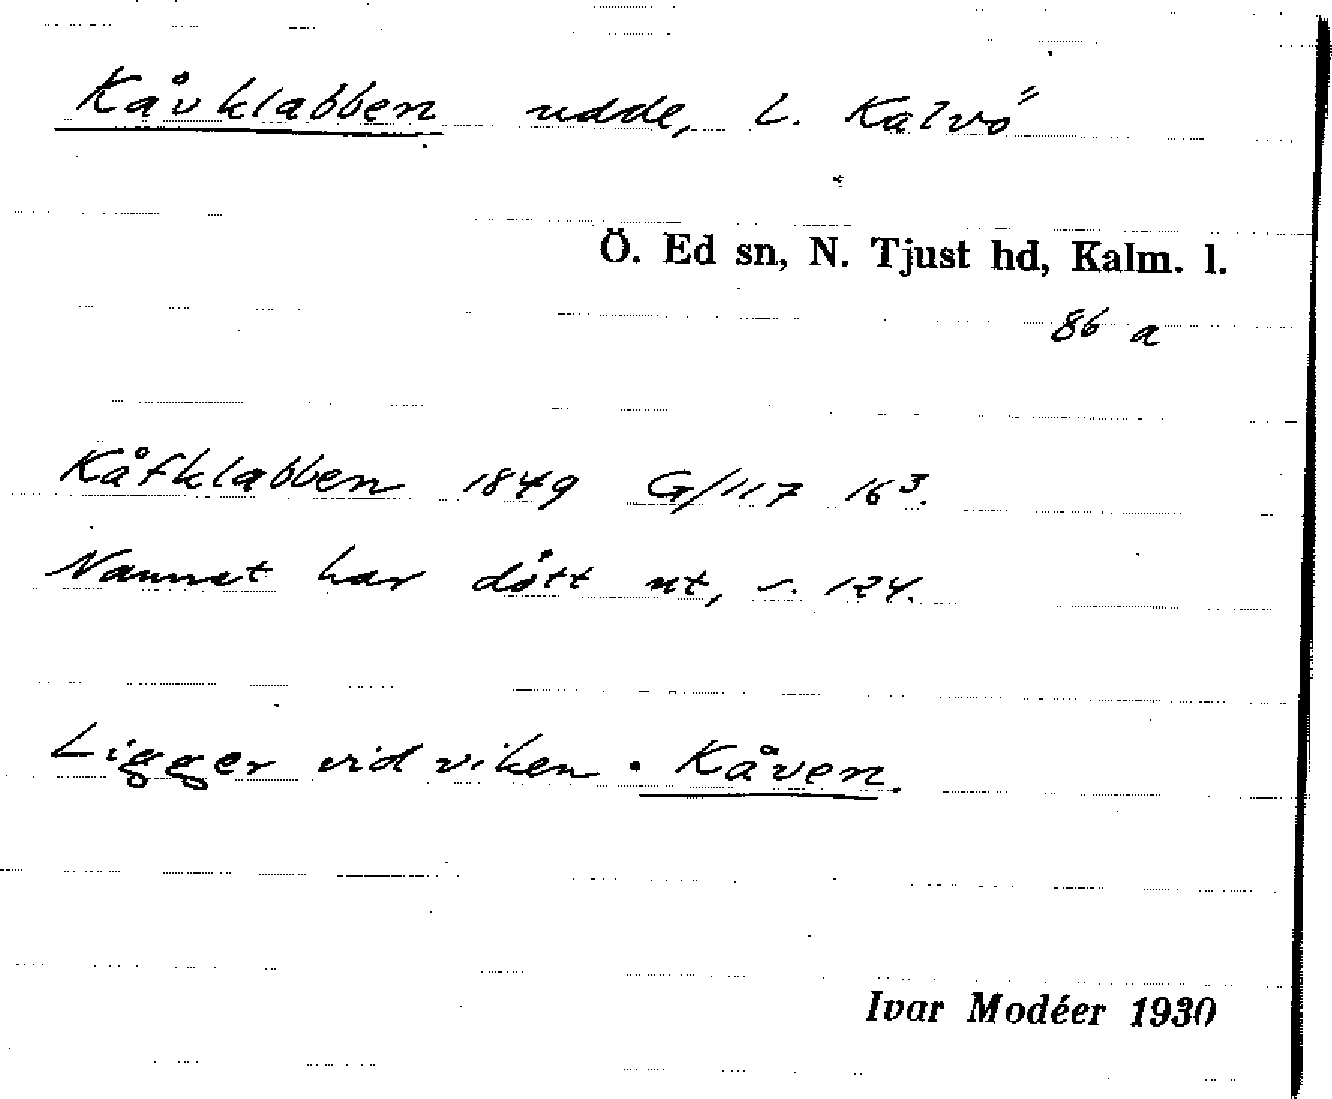 Kåvklabben udde, L. Kalvö
Ö. Ed sn, N. Tjust hd, Kalm. l.
86 a
Kåfklabben 1849 G/117 16³.
Namnet har dött ut, s. 124.
Ligger vid viken. Kåven.
Ivar Modéer 1930